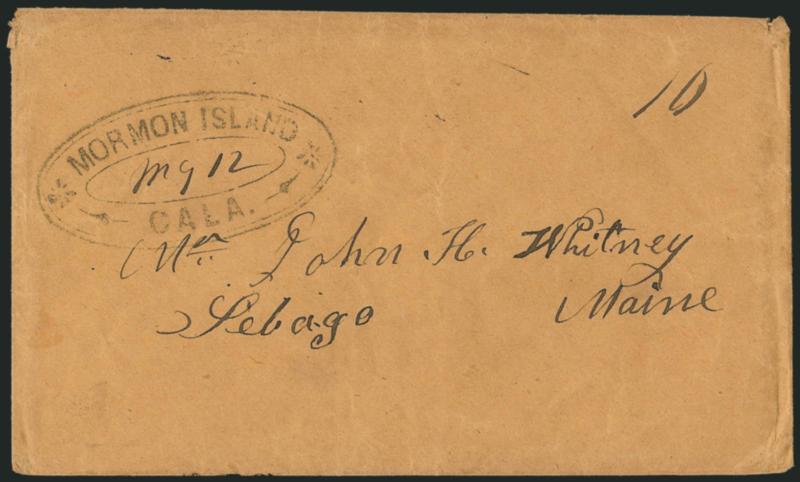 10
MORMON ISLAND
My 12
CALA.
Mr. John H. Whitney
Sebago Maine